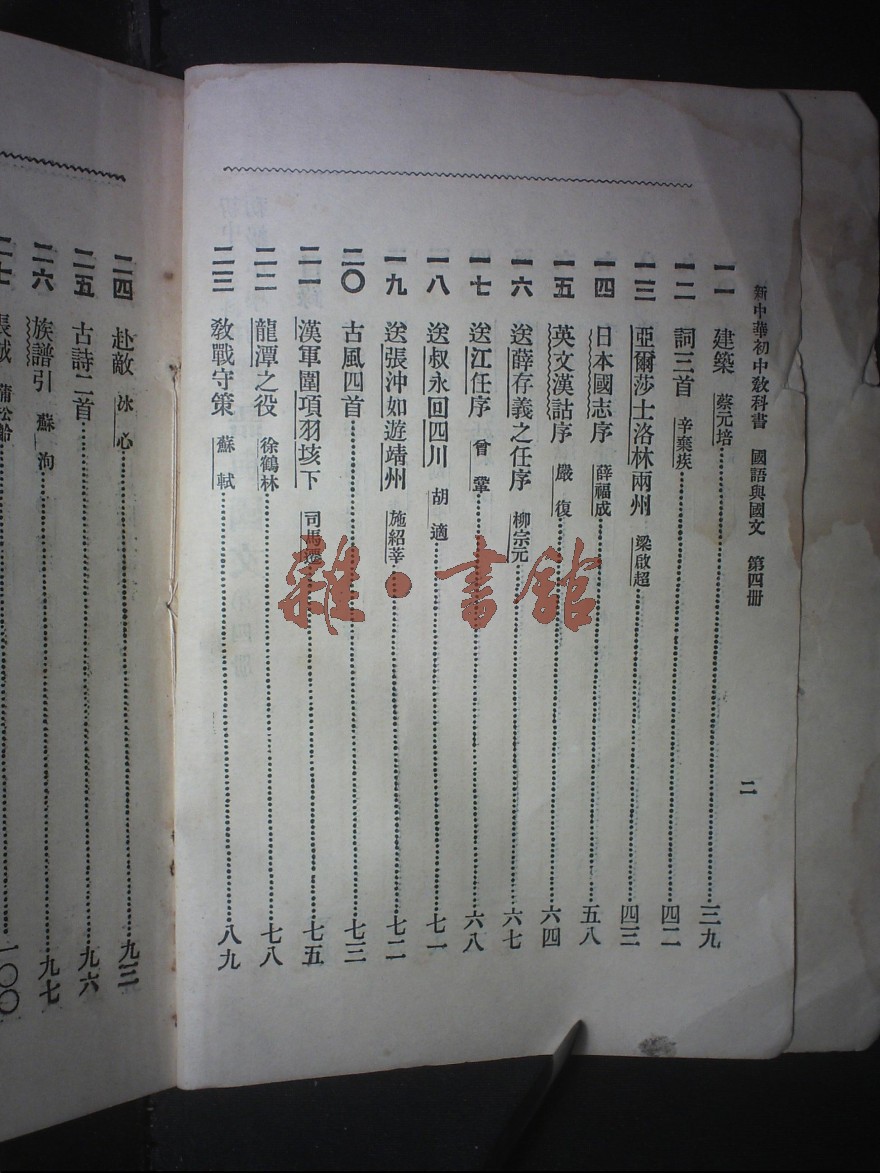 新中華初中教科書　國語與國文　第四冊
二
一一　建築　蔡元培　三九
一二　詞三首　辛棄疾　四二
一三　亞爾莎士洛林兩州　梁啟超　四三
一四　日本國志序　薛福成　五八
一五　英文漢詁序　嚴復　六四
一六　送薛存義之任序　柳宗元　六七
一七　送江任序　曾鞏　六八
一八　送叔永回四川　胡適　七一
一九　送張沖如遊靖州　施紹莘　七二
二〇　古風四首　七三
二一　漢軍圍項羽垓下　司馬遷　七五
二二　龍潭之役　徐鶴林　七八
二三　教戰守策　蘇軾　八九
二四　赴敵　冰心　九三
二五　古詩二首　九六
二六　族譜引　蘇洵　九七
二七　蒲松齡　一〇〇
雜·書館